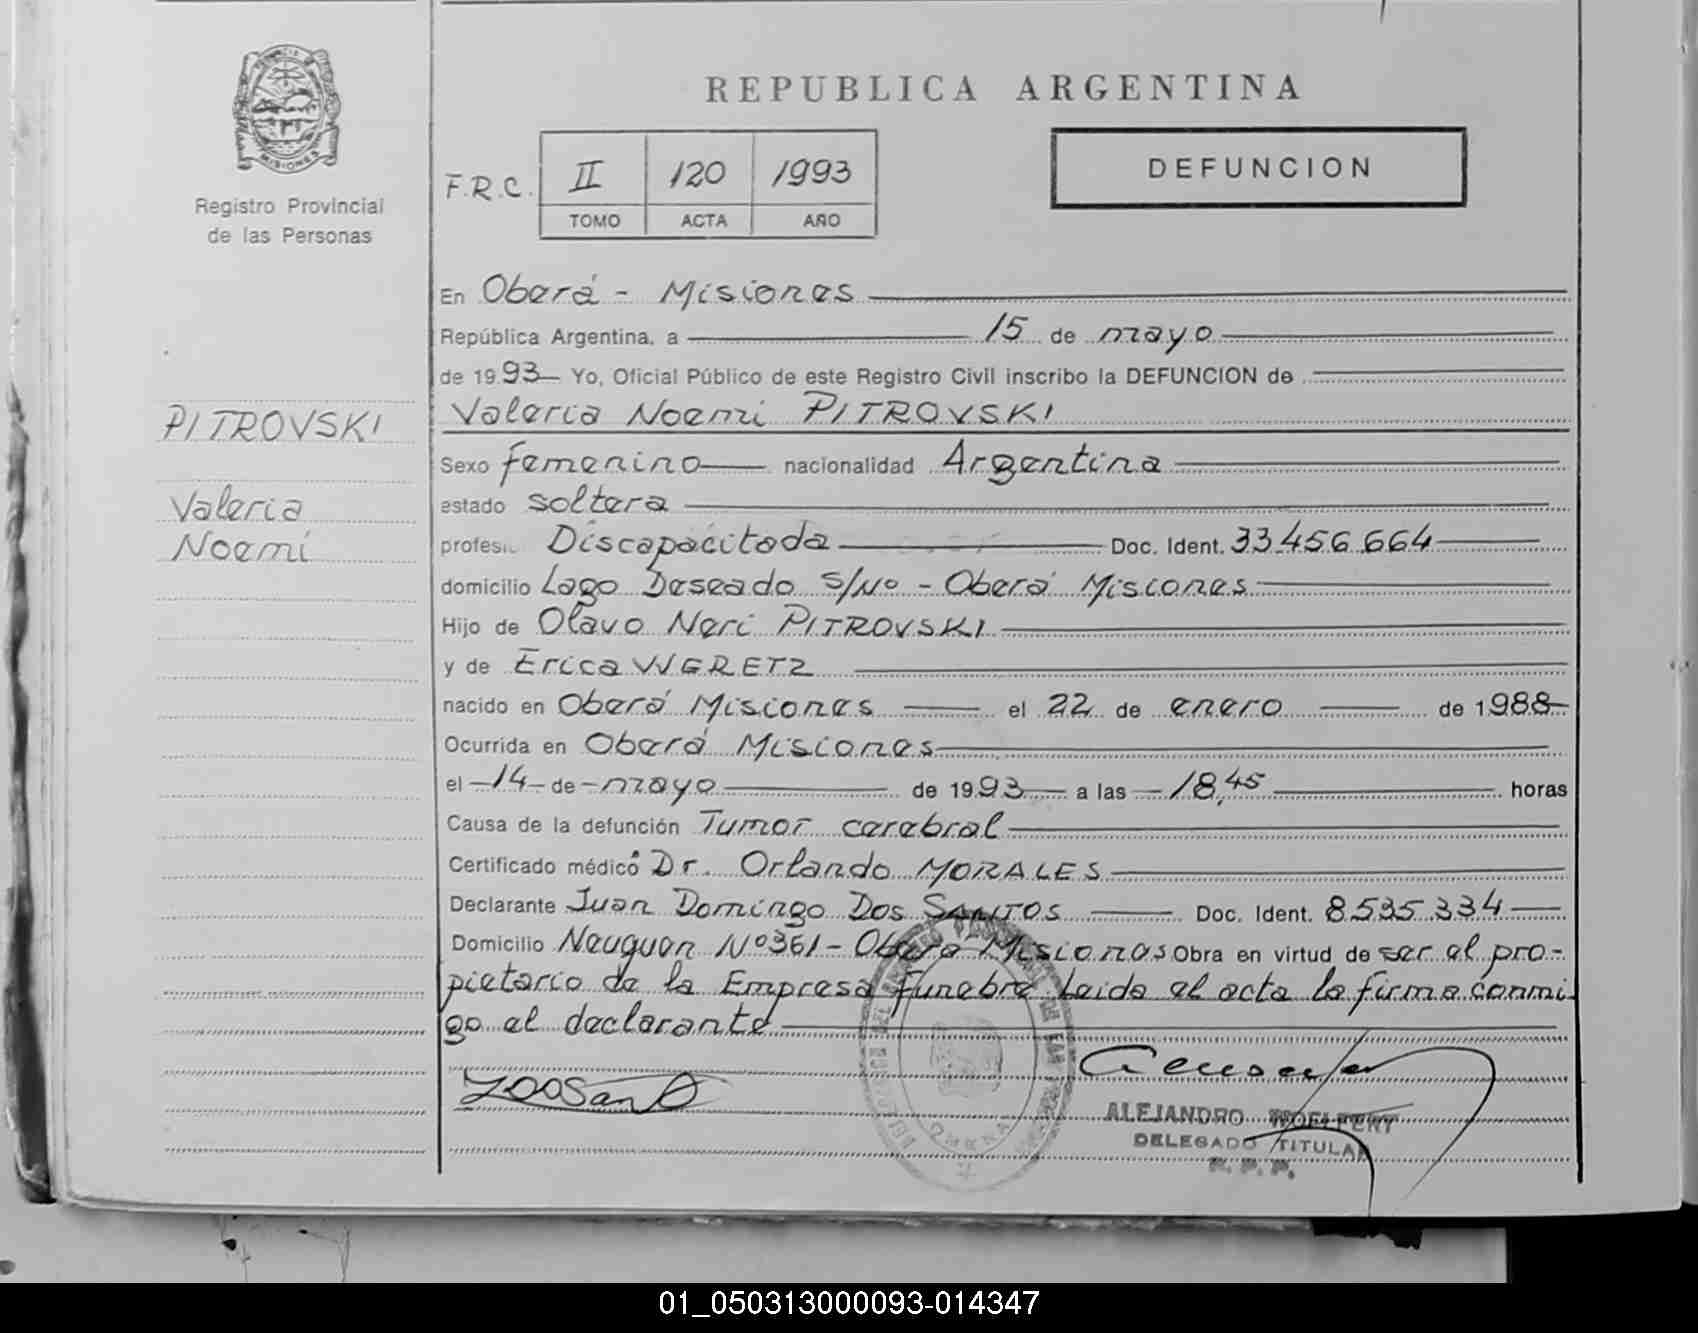 MISIONES
Registro Provincial
de las Personas
REPUBLICA ARGENTINA
F.R.C. II 120 1993
TOMO ACTA AÑO
DEFUNCION
En Oberá - Misiones
República Argentina, a 15 de mayo
de 1993 Yo, Oficial Público de este Registro Civil inscribo la DEFUNCION de
PITROVSKI
Valeria Noemi PITROVSKI
Sexo femenino nacionalidad Argentina
Valeria
estado soltera
Noemí
profesi. Discapacitada Doc. Ident. 33.456.664
domicilio Lago Deseado S/Nº - Oberá Misiones
Hijo de Olavo Neri PITROVSKI
y de Erica WERETZ
nacido en Oberá Misiones el 22 de enero de 1988
Ocurrida en Oberá Misiones
el 14 de mayo de 1993 a las 18,45 horas
Causa de la defunción Tumor cerebral
Certificado médico Dr. Orlando MORALES
Declarante Juan Domingo Dos SANTOS Doc. Ident. 8.535.334
Domicilio Neuquen Nº 361 - Oberá Misiones Obra en virtud de ser el pro-
pietario de la Empresa Funebre Leida el acta la firma conmi
go el declarante
ALEJANDRO WOELPERT
DELEGADO TITULAR
R. P. P.
01_050313000093-014347